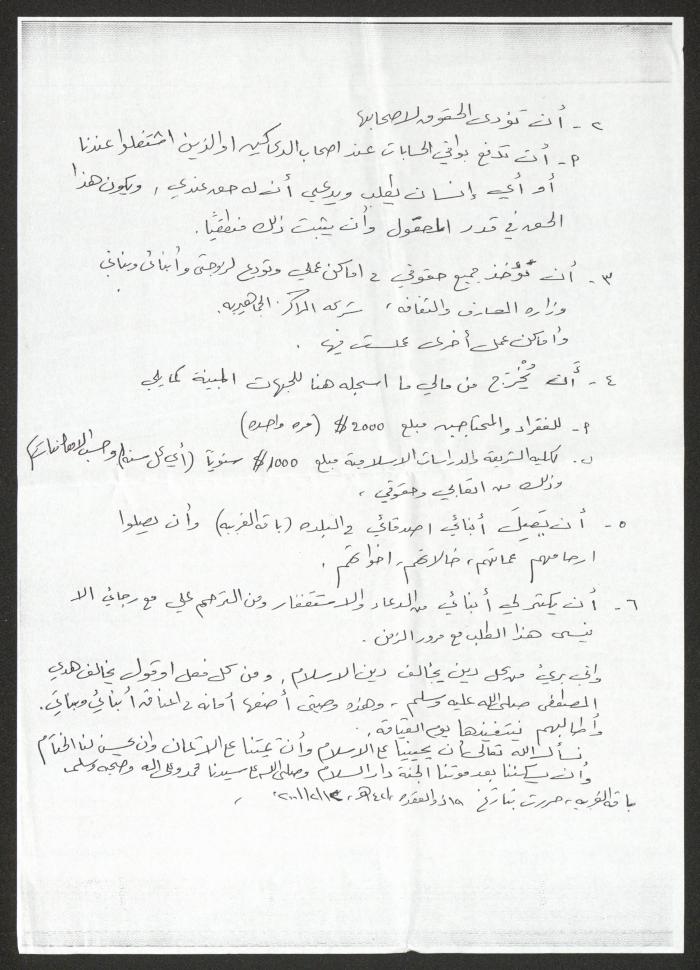 ٢ - أن تؤدى الحقوق لاصحابها
أ - أن تدفع بواقي الحسابات عند اصحاب الدكاكين او الذين اشتغلوا عندنا
أو أي إنسان يطلب ويدعي أن له حق عندي , ويكون هذا
الحق في قدر المعقول وأن يثبت ذلك منطقيًا .
٣ - أن تُؤخذ جميع حقوقي في اماكن عملي وتوزع لزوجتي وأبنائي وبناتي
وزاره المعارف والثقافه ، شركه المراكز الجماهيريه
وأماكن عمل أخرى عملت فيها .
٤ - أن يُخْرَج من مالي ما اسجله هنا للجهات المبينة كما يلي
أ - للفقراء والمحتاجين مبلغ 2000 $ (مره واحده)
ب . لكليه الشريعة والدراسات الاسلامية مبلغ 1000 $ سنوياً (أي كل سنه) وحسب الامكانيات
وذلك من اتعابي وحقوقي ،
٥ - أن يَصِلَ أبنائي اصدقائي في البلده (باقه الغربيه) وأن يصلوا
ارحامهم عماتهم ، خالاتهم ، اخواتهم .
٦ - أن يكثر لي أبنائي من الدعاء والاستغفار ومن الترحم علي مع رجائي الا
ينسى هذا الطلب مع مرور الزمن .
واني بريء من كل دين يخالف دين الاسلام , ومن كل فعل او قول يخالف هدي
المصطفى صلى الله عليه وسلم ، وهذه وصيتي أضعها أمانه في اعناق أبنائي وبناتي .
وأطالبهم بتنفيذها يوم القيامة .
نسأل الله تعالى بأن يحيينا على الاسلام وأن يميتنا على الايمان وان يحسن لنا الختام
وأن يسكننا بعد موتنا الجنة دار السلام وصلى الله على سيدنا محمد وعلى اله وصحبه وسلم
باقه الغربيه ، حررت بتاريخ ١٨ ذو القعده ١٤٢١هـ ،